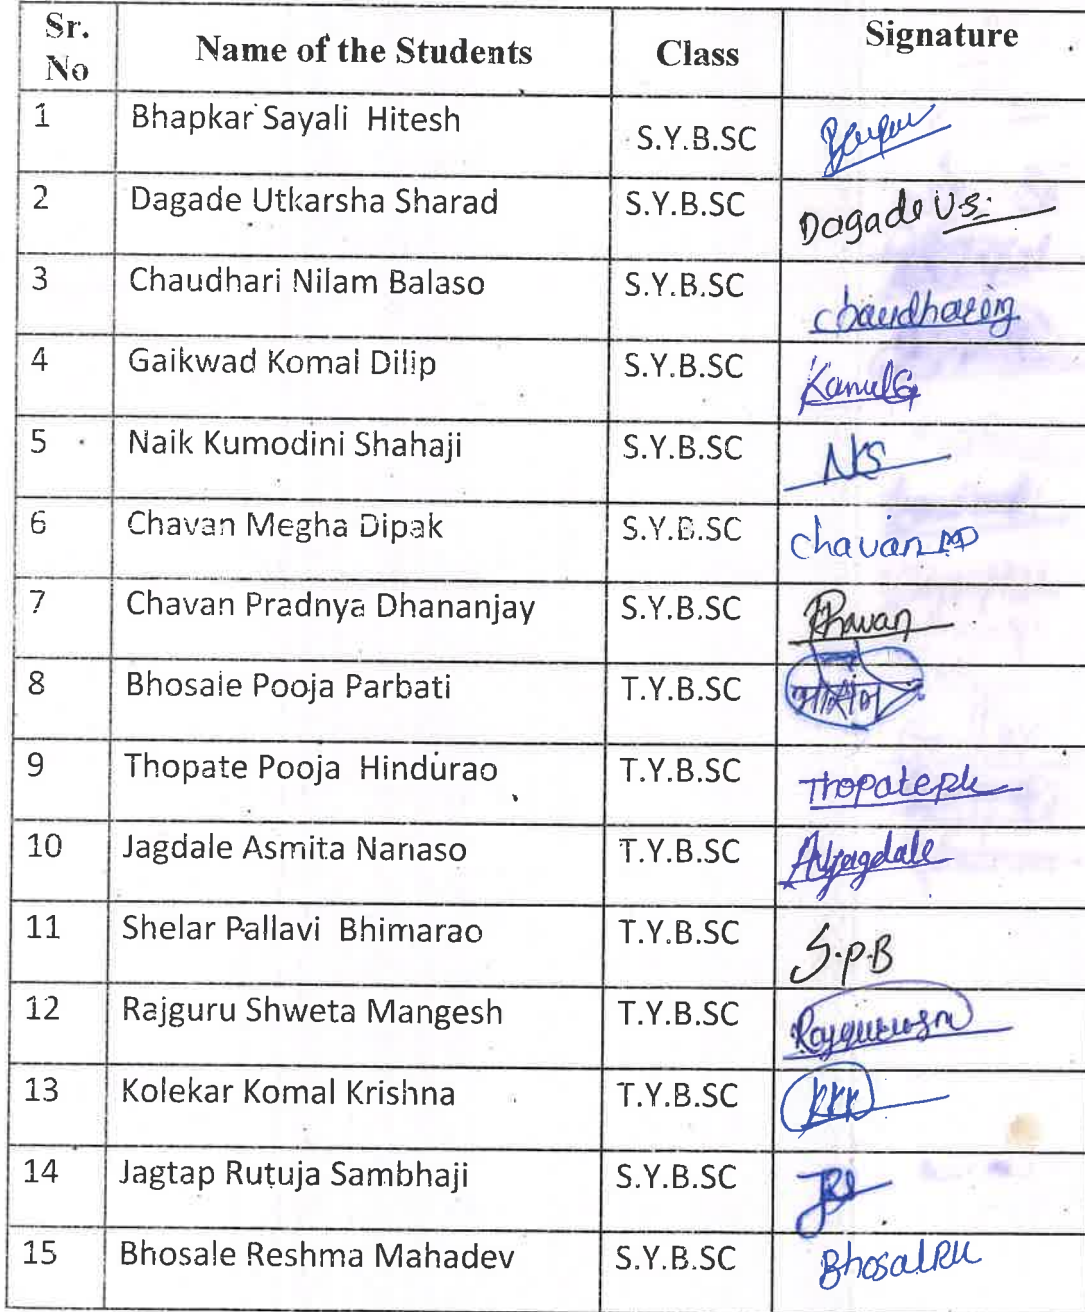 Sr. No Name of the Students Class Signature
1 Bhapkar Sayali Hitesh S.Y.B.SC
2 Dagade Utkarsha Sharad S.Y.B.SC Dagade U.S.
3 Chaudhari Nilam Balaso S.Y.B.SC
4 Gaikwad Komal Dilip S.Y.B.SC
5 Naik Kumodini Shahaji S.Y.B.SC NKS
6 Chavan Megha Dipak S.Y.B.SC Chavan MD
7 Chavan Pradnya Dhananjay S.Y.B.SC
8 Bhosale Pooja Parbati T.Y.B.SC
9 Thopate Pooja Hindurao T.Y.B.SC Thopateph
10 Jagdale Asmita Nanaso T.Y.B.SC
11 Shelar Pallavi Bhimarao T.Y.B.SC S.P.B
12 Rajguru Shweta Mangesh T.Y.B.SC
13 Kolekar Komal Krishna T.Y.B.SC KKK
14 Jagtap Rutuja Sambhaji S.Y.B.SC
15 Bhosale Reshma Mahadev S.Y.B.SC